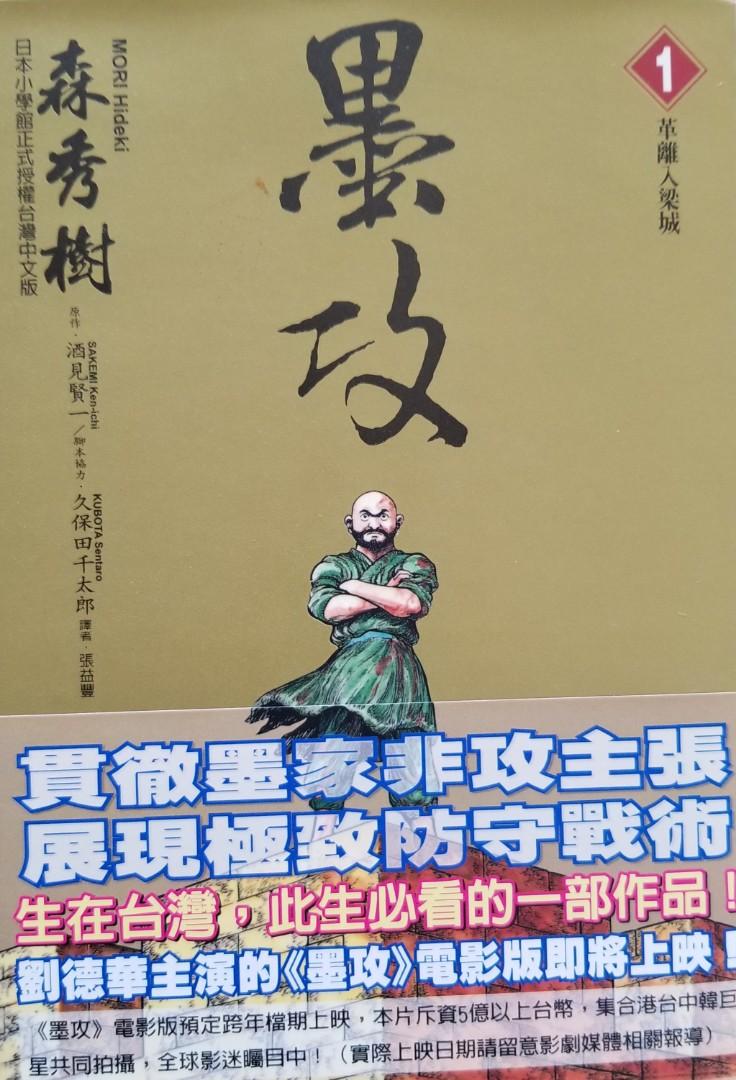 1
革離入梁城
墨攻
MORI Hideki
森秀樹
日本小學館正式授權台灣中文版
SAKEMI Ken-ichi
原作·酒見賢一／腳本協力·久保田千太郎 譯者·張益豐
KUBOTA Sentaro
貫徹墨家非攻主張
展現極致防守戰術
生在台灣，此生必看的一部作品！
劉德華主演的《墨攻》電影版即將上映！
《墨攻》電影版預定跨年檔期上映，本片斥資5億以上台幣，集合港台中韓巨
星共同拍攝，全球影迷矚目中！（實際上映日期請留意影劇媒體相關報導）